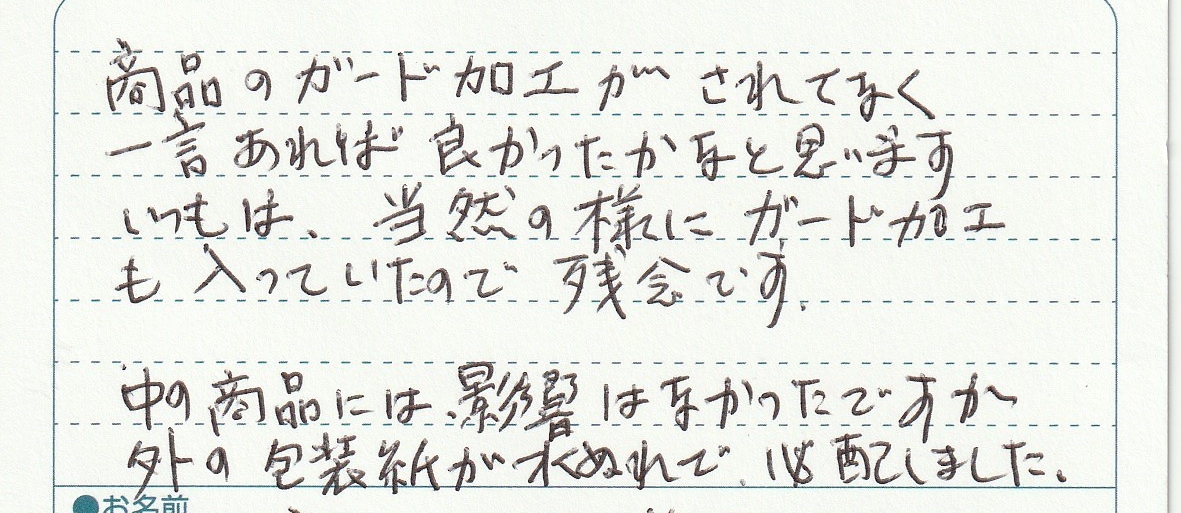 商品のガード加工が されてなく
一言あれば 良かったかなと思います
いつもは、当然の様に ガード加工
も 入っていたので 残念です.
中の商品には 影響はなかったですが
外の包装紙が水ぬれで、心配しました.
●お名前